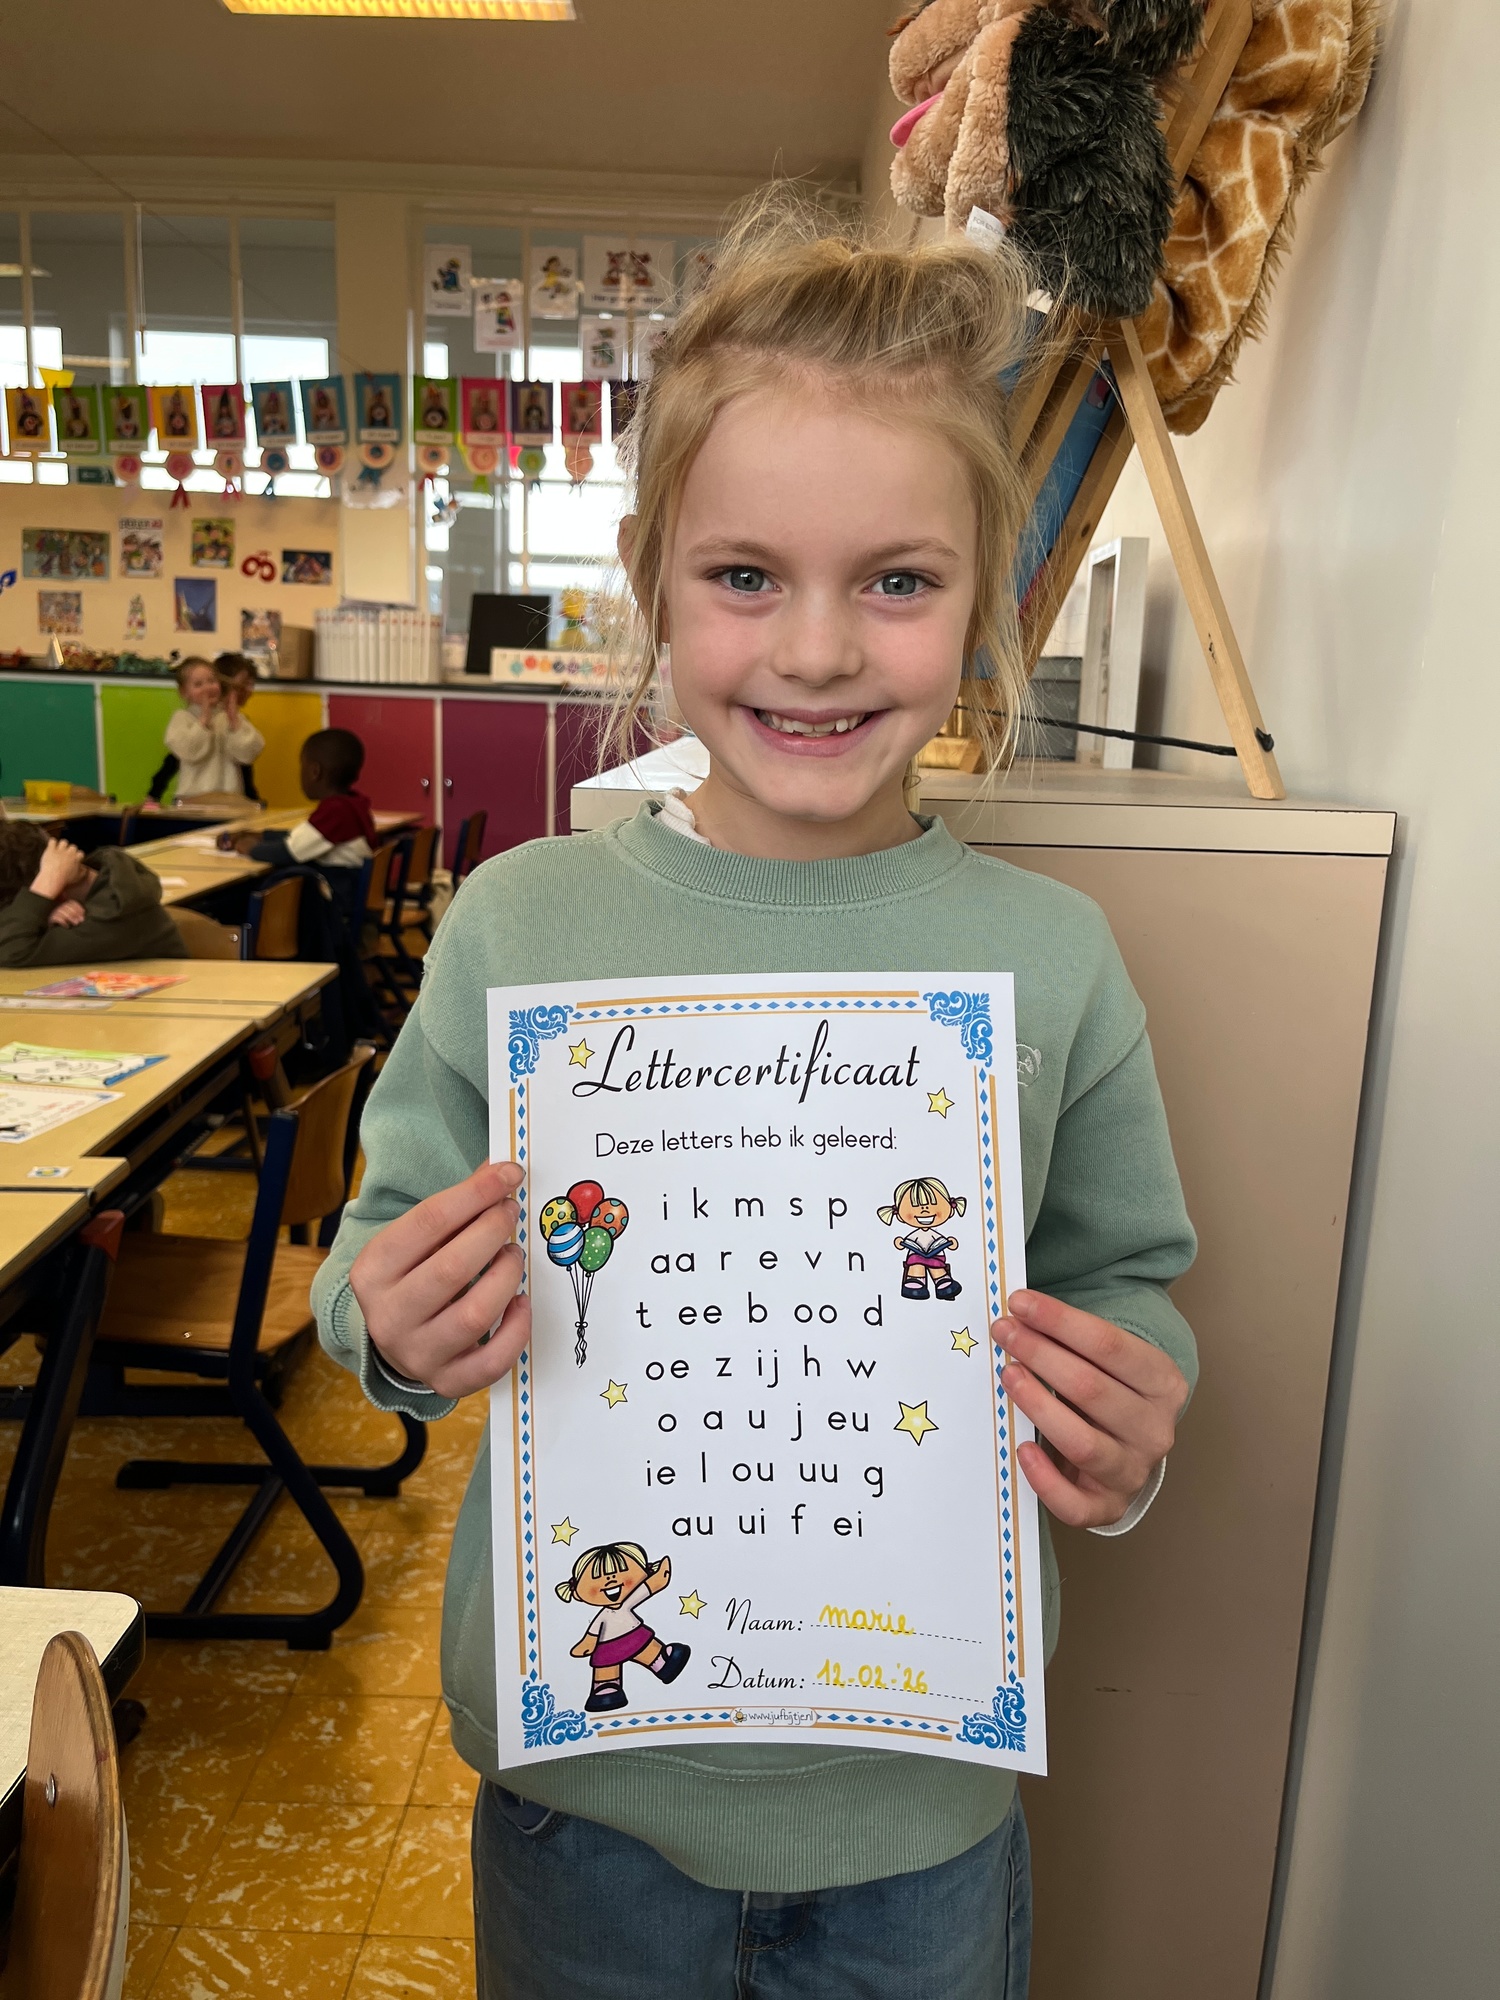 Lettercertificaat
Deze letters heb ik geleerd:
i k m s p
aa r e v n
t ee b oo d
oe z ij h w
o a u j eu
ie l ou uu g
au ui f ei
Naam: marie
Datum: 12-02-'26
www.jufbijtje.nl